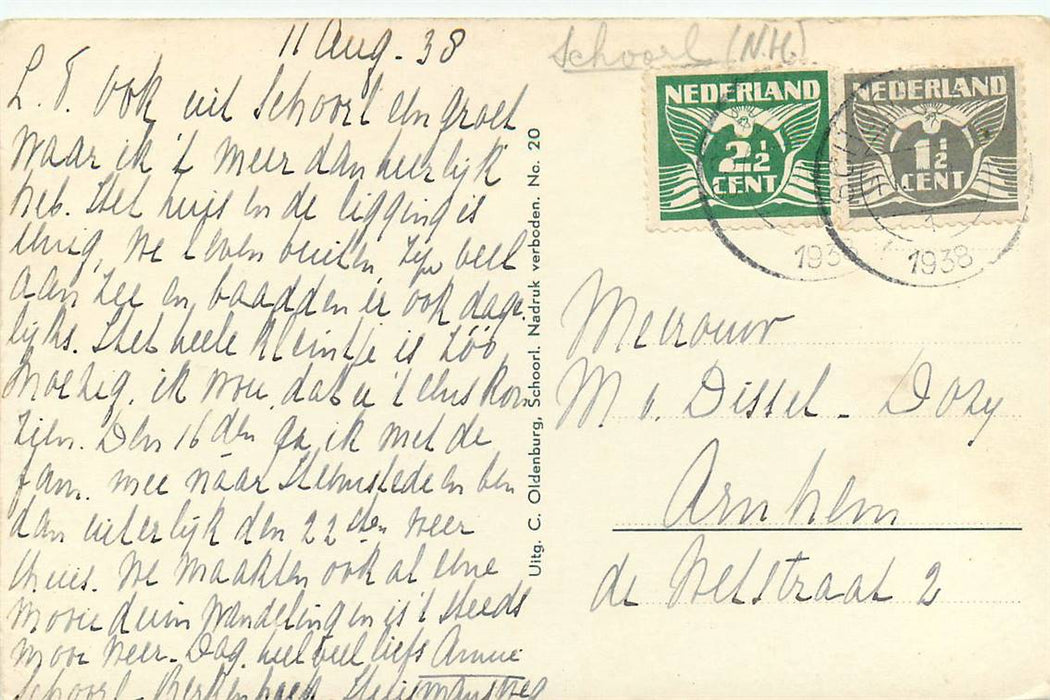 11 Aug. 38
L. T. Ook uit Schoorl een groet
waar ik 't meer dan heerlijk
heb. Het huis en de ligging is
enig, we leven buiten, zijn veel
aan zee en baadden er ook dage-
lijks. Het heele kleintje is zóó
moedig, ik wou, dat u 't eens kon
zien. Den 16den ga ik met de
fam. mee naar Heemstede en ben
dan uiterlijk den 22sten weer
thuis. We maakten ook al eene
mooie duin wandeling en is 't steeds
mooi weer. Dag. heel veel liefs Annie
Schoorl Berkenhoek
Uitg. C. Oldenburg, Schoorl. Nadruk verboden. No. 20
Schoorl (N.H.)
NEDERLAND
2½
CENT
NEDERLAND
1½
CENT
193
1938
Mevrouw
M v. Dissel - Dozy
Arnhem
de Wetstraat 2